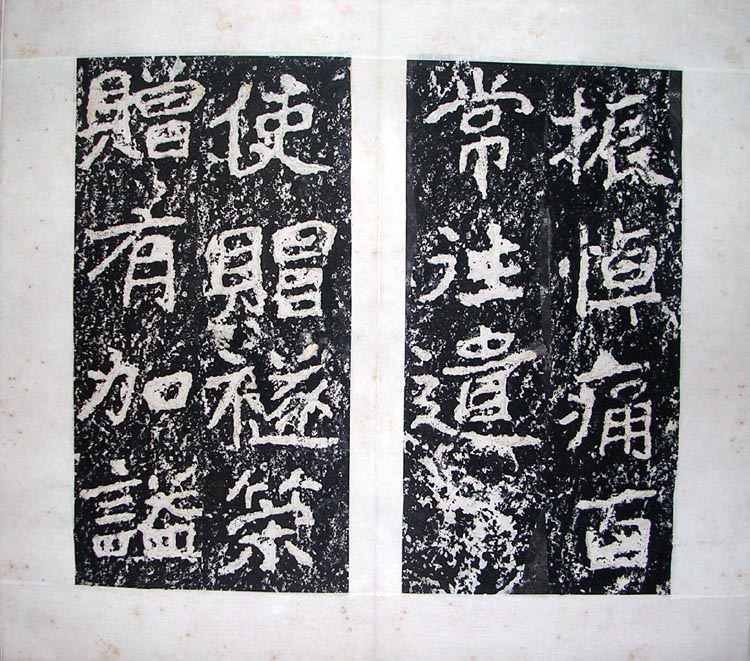 振悼痛百
常往遣
使賵襚策
贈有加謚